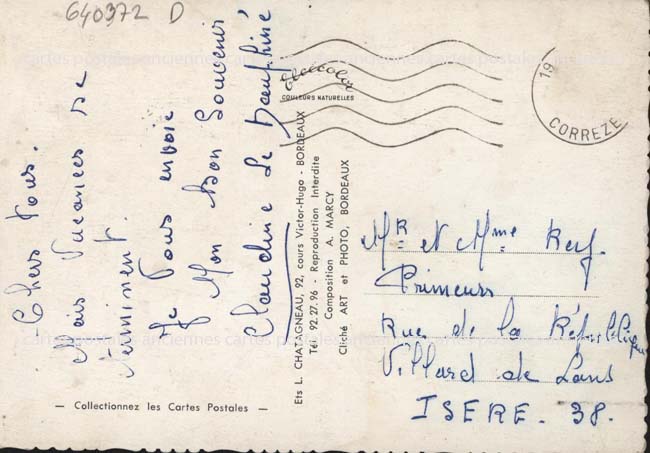 640372 D
Chers Tous.
Mais Vacances se
terminent.
Je Vous envoie
Mon Bon Souvenir
Claudine Le Dauphiné
Elcécolor
COULEURS NATURELLES
19
CORREZE
Ets L. CHATAGNEAU, 92, cours Victor-Hugo - BORDEAUX
Tél. 92.27.96 - Reproduction Interdite
Composition A. MARCY
Cliché ART et PHOTO, BORDEAUX
Mr et Mme Rey.
Primeurs
Rue de la République
Villard de Lans
ISERE - 38.
— Collectionnez les Cartes Postales —
cartes postales anciennes cartes postales anciennes
cartes postales anciennes cartes postales anciennes